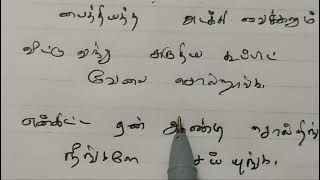 பைத்தியத்த அடக்கி வைக்கறும்
விட்டு வந்து சுருதிய கூப்பிட
வேலை சொல்றாங்க.
என்கிட்ட ஏன் ஆண்டி சொல்றிங்
நீங்களே செய்யுங்க.